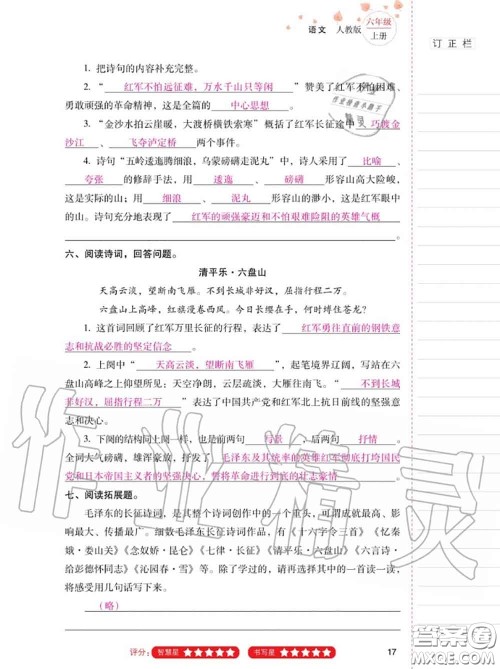 语文 人教版 六年级 上册
订正栏
1. 把诗句的内容补充完整。
2. “ 红军不怕远征难，万水千山只等闲 ”赞美了红军不怕困难、
勇敢顽强的革命精神，这是全篇的 中心思想 。
3. “金沙水拍云崖暖，大渡桥横铁索寒”概括了红军长征途中 巧渡金
沙江 、 飞夺泸定桥 两个事件。
4. 诗句“五岭逶迤腾细浪，乌蒙磅礴走泥丸”中，诗人采用了 比喻 、
夸张 的修辞手法，用 逶迤 、 磅礴 形容山高大险峻，
这是实写；用 细浪 、 泥丸 形容山的渺小，这是红军眼中
的山。诗句充分地表现了 红军的顽强豪迈和不怕艰难险阻的英雄气概
。
六、阅读诗词，回答问题。
清平乐·六盘山
天高云淡，望断南飞雁。不到长城非好汉，屈指行程二万。
六盘山上高峰，红旗漫卷西风。今日长缨在手，何时缚住苍龙？
1. 这首词回顾了红军万里长征的行程，表达了 红军勇往直前的钢铁意
志和抗战必胜的坚定信念 。
2. 上阕中“ 天高云淡，望断南飞雁 ”，起笔境界辽阔，写站在六
盘山高峰之上仰望所见：天空净朗，云层疏淡，大雁往南飞。“ 不到长城
非好汉，屈指行程二万 ”表达了中国共产党和红军北上抗日前线的坚强
意志和决心。
3. 下阕的结构同上阕一样，也是前两句 写景 ，后两句 抒情 。
全词大气磅礴，雄浑豪放，抒发了 毛泽东及其统率的英雄红军彻底打垮国民
党和日本帝国主义者的坚强决心，誓将革命进行到底的壮志豪情 。
七、阅读拓展题。
毛泽东的长征诗词，是其整个诗词创作中的一个重头，可谓成就最高、影
响最大、传播最广。细数毛泽东长征诗词作品，有《十六字令三首》《忆秦
娥·娄山关》《念奴娇·昆仑》《七律·长征》《清平乐·六盘山》《六言诗·
给彭德怀同志》《沁园春·雪》等。请找出你最喜欢的一首或几首读一读，
将感受用几句话写下来。
（略）
评分： 智慧星 ★★★★★ 书写星 ★★★★★
17
作业精灵
答案圈
MXQE.COM